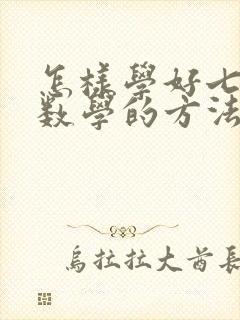 怎樣學好七
数學的方法
烏拉拉大酋長